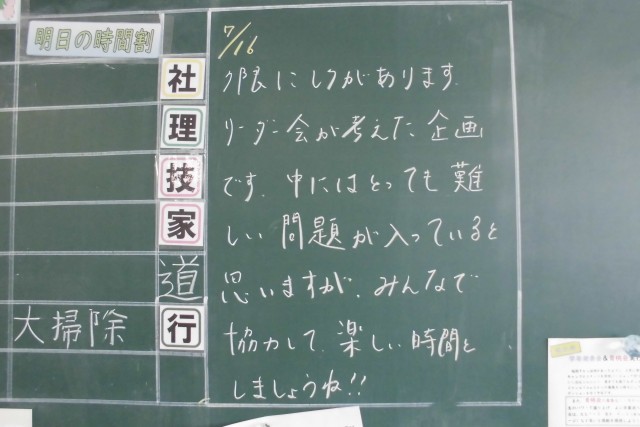 明日の時間割
社
理
技
家
道
大掃除 行
7/16
夕限にレクがあります.
リーダー会が考えた企画
です. 中にはとっても難
しい問題が入っていると
思いますが、みんなで
協力して、楽しい時間に
しましょうね!!